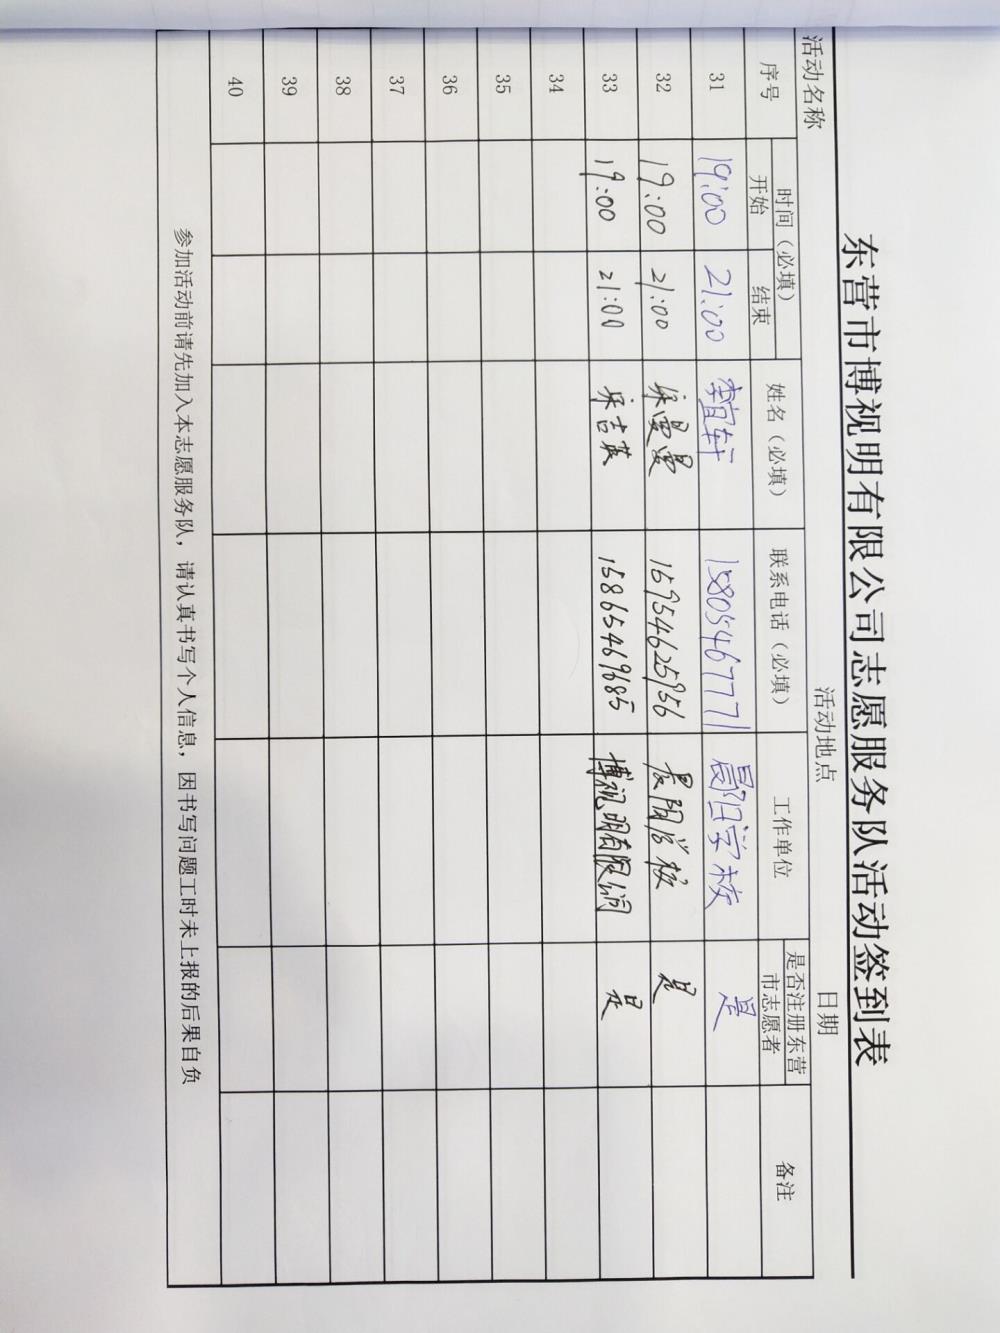 东营市博视明有限公司志愿服务队活动签到表
活动名称 活动地点 日期
序号 时间（必填） 姓名（必填） 联系电话（必填） 工作单位 是否注册东营市志愿者 备注
开始 结束
31 19:00 21:00 李宜轩 15805467771 晨阳学校 是
32 19:00 21:00 曼曼 15954625956 晨阳学校 是
33 19:00 21:00 吉英 15865469685 博视明有限公司 是
34
35
36
37
38
39
40
参加活动前请先加入本志愿服务队，请认真书写个人信息，因书写问题工时未上报的后果自负